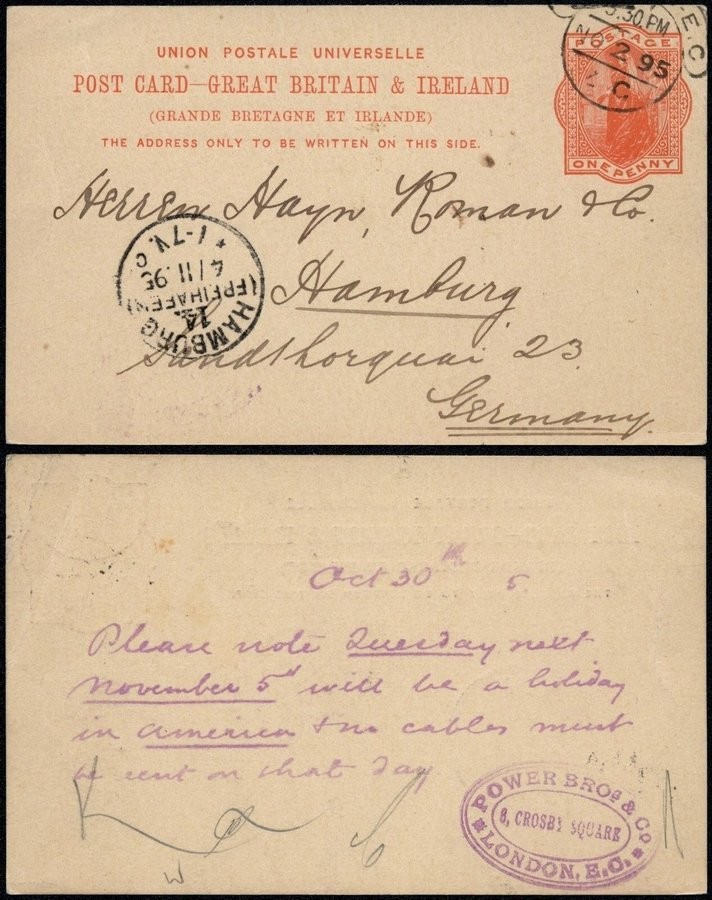 UNION POSTALE UNIVERSELLE
POST CARD—GREAT BRITAIN & IRELAND
(GRANDE BRETAGNE ET IRLANDE)
THE ADDRESS ONLY TO BE WRITTEN ON THIS SIDE.
E.C
5.30.PM
NO 2 95
C
POSTAGE
ONE PENNY
Herren Hayn, Roman & Co.
Hamburg
Sandthorquai 23
Germany.
HAMBURG
14
(FREIHAFEN)
4/11.95
*1-7V.
Oct 30th 5
Please note Tuesday next
November 5d will be a holiday
in America & no cables must
be sent on that day
POWER BROS & CO
6, CROSBY SQUARE
LONDON, E.C.